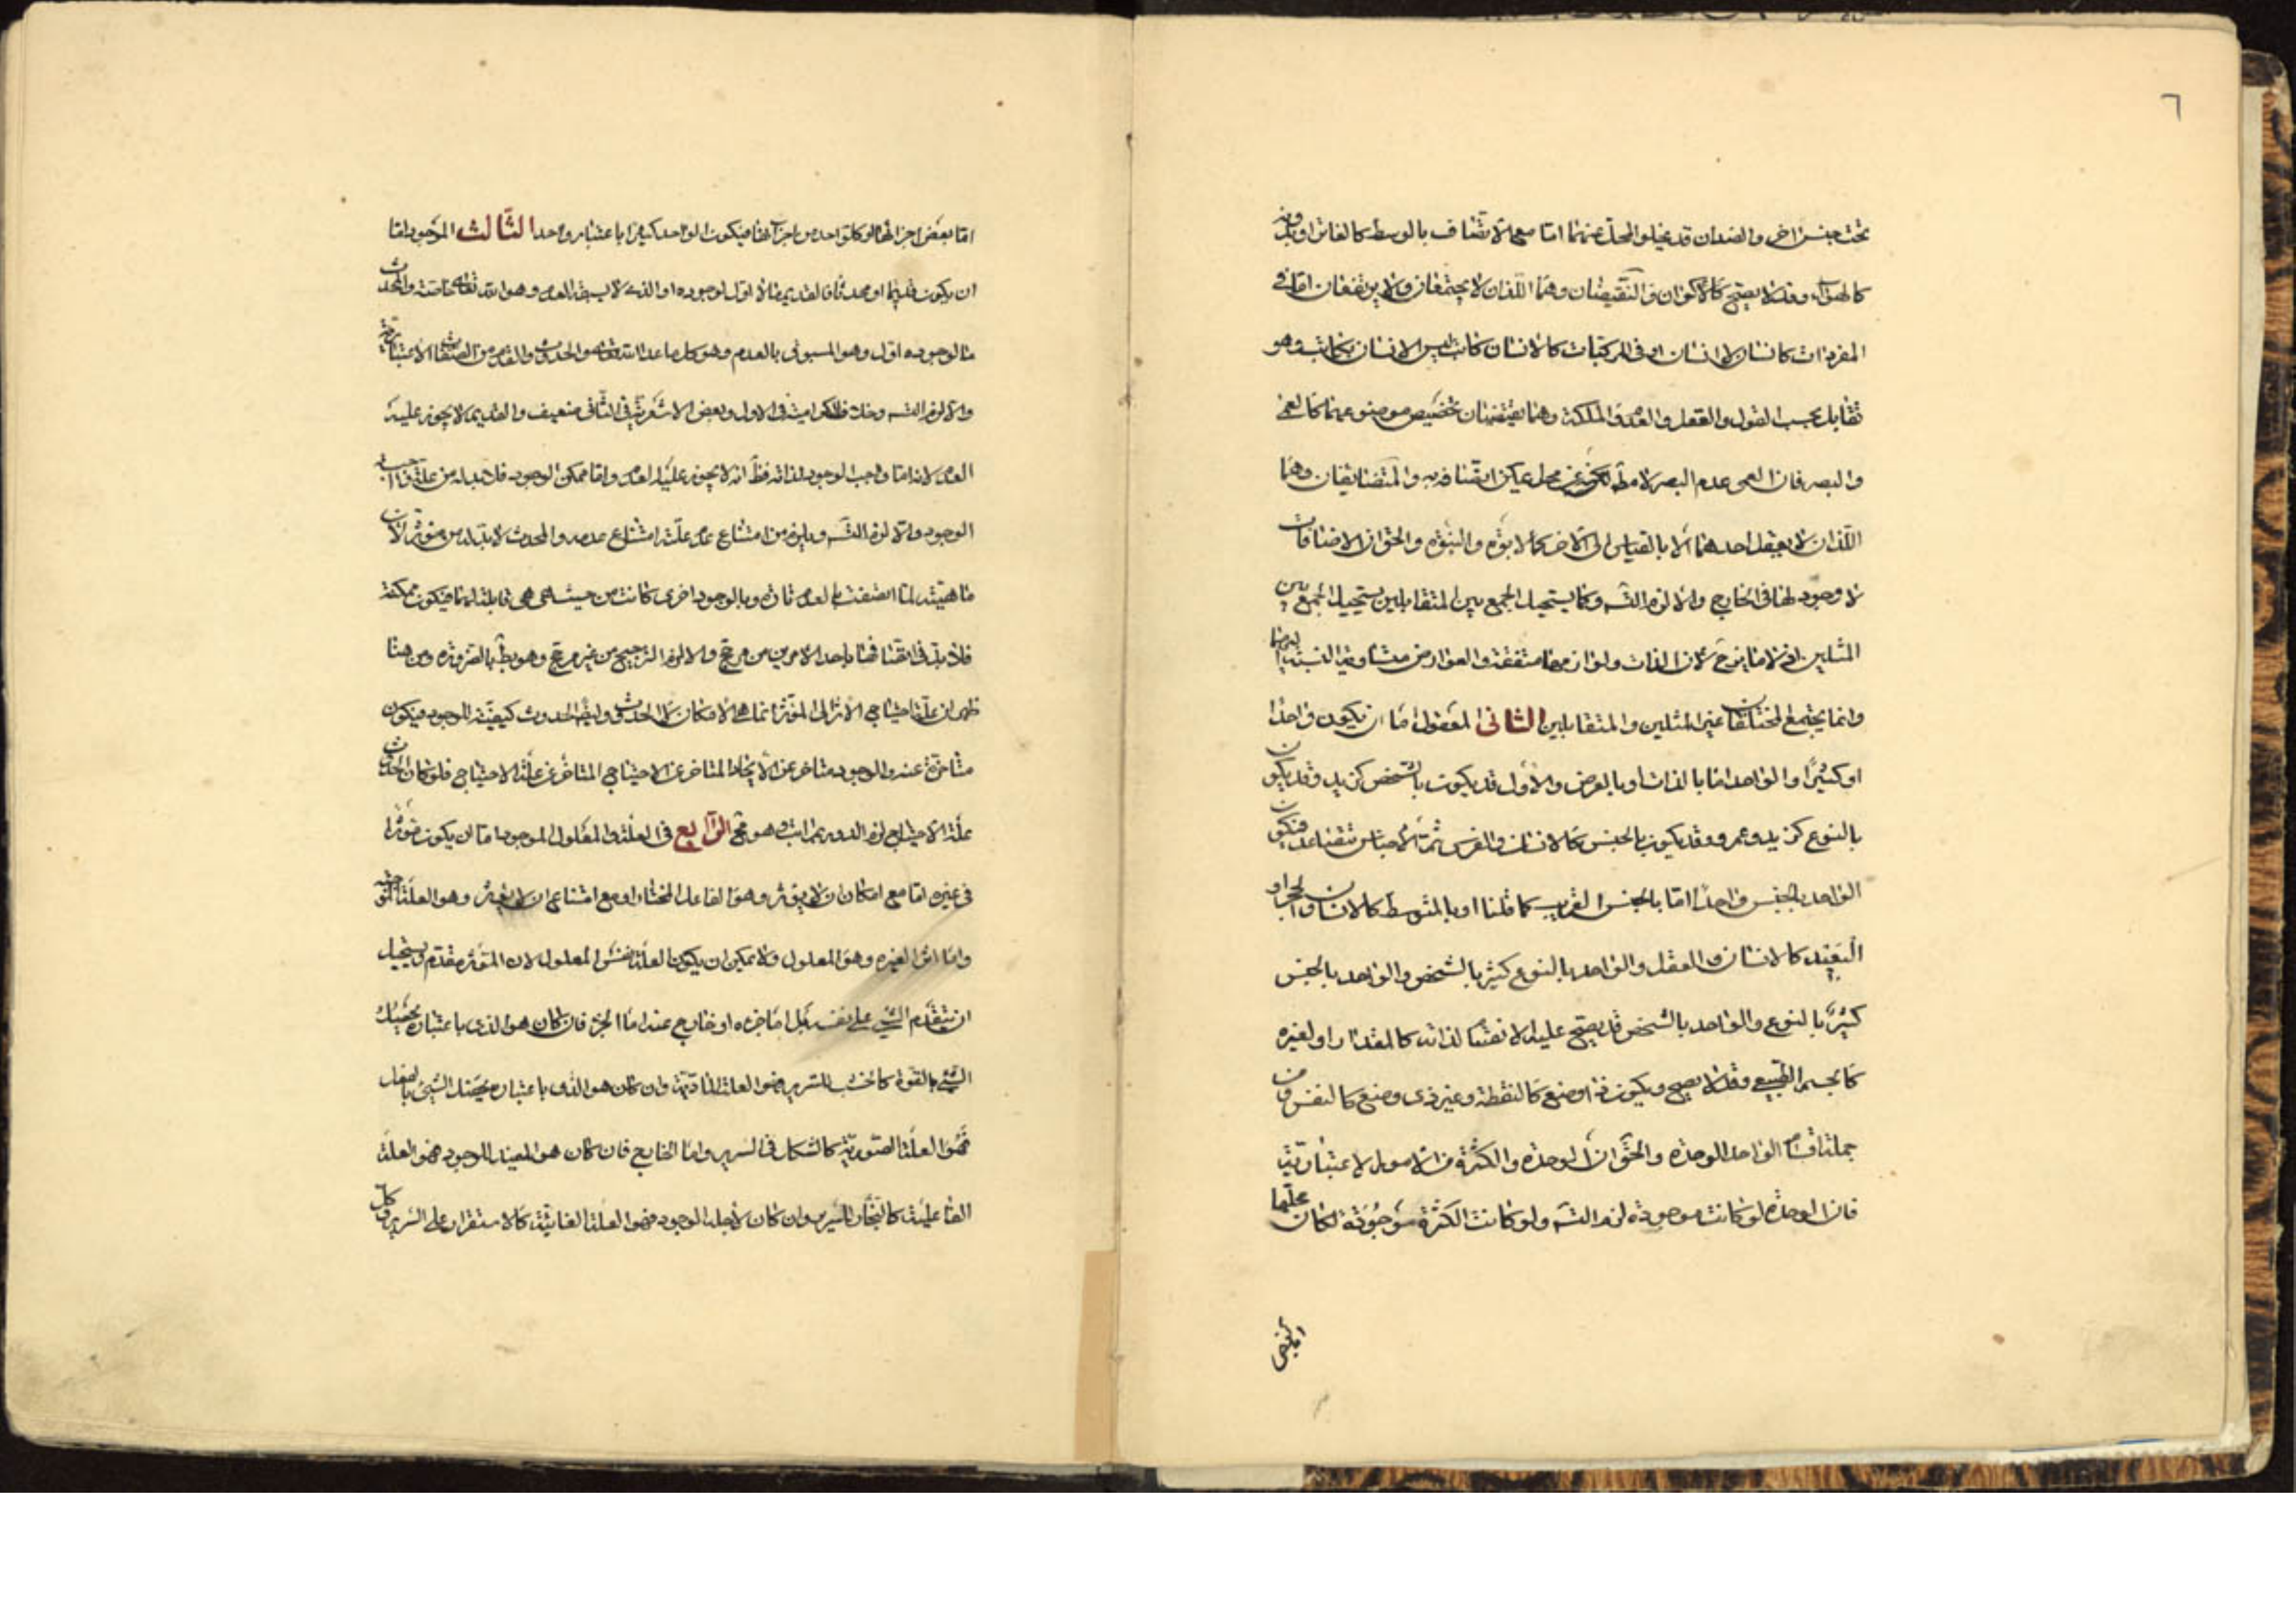 ٦
تحت جنس اخر والضدان قد يخلو المحل عنهما اما مع الاتصاف بالوسط كالفاتر او بدونه
كالهواء وقد لا يصح كالاكوان والنقيضان وهما اللذان لا يجتمعان ولا يرتفعان اما في
المفردات كانسان لا انسان او في المركبات كالانسان كاتب ليس الانسان بكاتب وهو
تقابل بحسب القول والعقل والعدم والملكة وهما يقتضيان تخصيص موضوعهما كالعمى
والبصر فان العمى عدم البصر لا مط بل عن محل يمكن اتصافه به والمتضايفان وهما
اللذان لا يعقل احدهما الا بالقياس الى الاخر كالابوة والبنوة والحق ان الاضافات
لا وجود لها في الخارج والا لزم التسـ وكما يستحيل الجمع بين المتقابلين يستحيل الجمع بين
المثلين اذ لا مايز ح لان الذات ولوازمها متفقة والعوارض متساوية النسبة اليهما
وانما يجتمع المختلفان غير المثلين والمتقابلين الثاني المعقول اما ان يكون واحدا
او كثيرا والواحد اما بالذات او بالعرض والاول قد يكون بالشخص كزيد وقد يكون
بالنوع كزيد وعمرو وقد يكون بالجنس كالانسان والفرس ثم الاجناس تتصاعد فيكون
الواحد بالجنس واحدا اما بالجنس القريب كما قلنا او بالمتوسط كالانسان والحجر او
البعيد كالانسان والعقل والواحد بالنوع كثير بالشخص والواحد بالجنس
كثير بالنوع والواحد بالشخص قد يصح عليه الانقسام لذاته كالمقدار او لغيره
كالجسم الطبيعي وقد لا يصح ويكون ذا وضع كالنقطة وغير ذي وضع كالنفس ومن
جملة اقسام الواحد الوحدة والحق ان الوحدة والكثرة من الامور الاعتبارية
فان الوحدة لو كانت موجودة لزم التسـ ولو كانت الكثرة موجودة لكان محلها
اما بعض اجزائها او كل واحد من اجزائها فيكون الواحد كثيرا باعتبار واحد الثالث الموجود اما
ان يكون قديما او محدثا فالقديم ما لا اول لوجوده او الذي لا يسبقه العدم وهو الله تعالى خاصة والمحدث
ما لوجوده اول وهو المسبوق بالعدم وهو كل ما عدا الله تعالى والحدوث والقدم من الصفات الاعتبارية
والا لزم التسـ وخلاف الكرامية في الاول وبعض الاشعرية في الثاني ضعيف والقديم لا يجوز عليه
العدم لانه اما واجب الوجود لذاته فظ انه لا يجوز عليه العدم واما ممكن الوجود فلا بد له من علة واجبة
الوجود والا لزم التسـ ويلزم من امتناع عدم علته امتناع عدمه والمحدث لا بد له من مؤثر لان
ماهيته لما اتصفت بالعدم تارة وبالوجود اخرى كانت من حيث هي هي قابلة لهما فيكون ممكنة
فلا بد في اتصافها باحد الامرين من مرجح والا لزم الترجيح من غير مرجح وهو بط بالضرورة ومن هنا
ظهر ان علة احتياج الاثر الى المؤثر انما هي الامكان لا الحدوث وايضا الحدوث كيفية للوجود فيكون
متأخرة عنه والوجود متاخر عن الايجاد المتاخر عن الاحتياج المتاخر عن علة الاحتياج فلو كان الحدوث
علة الاحتياج لزم الدور بمراتب وهو مح الرابع في العلة والمعلول الموجود اما ان يكون مؤثرا
في غيره اما مع امكان ان لا يؤثر وهو الفاعل المختار او مع امتناع ان لا يؤثر وهو العلة الموجبة
واما اثرا لغيره وهو المعلول ولا يمكن ان يكون العلة نفس المعلول لان المؤثر مقدم ويستحيل
ان يتقدم الشيء على نفسه بل اما جزءه او خارج عنه اما الجزء فان كان هو الذي باعتباره يحصل
الشيء بالقوة كالخشب للسرير فهو العلة المادية وان كان هو الذي باعتباره يحصل الشيء بالفعل
فهو العلة الصورية كالشكل في السرير واما الخارج فان كان هو المفيد للوجود فهو العلة
الفاعلية كالنجار للسرير وان كان لاجله الوجود فهو العلة الغائية كالاستقرار على السرير وكل